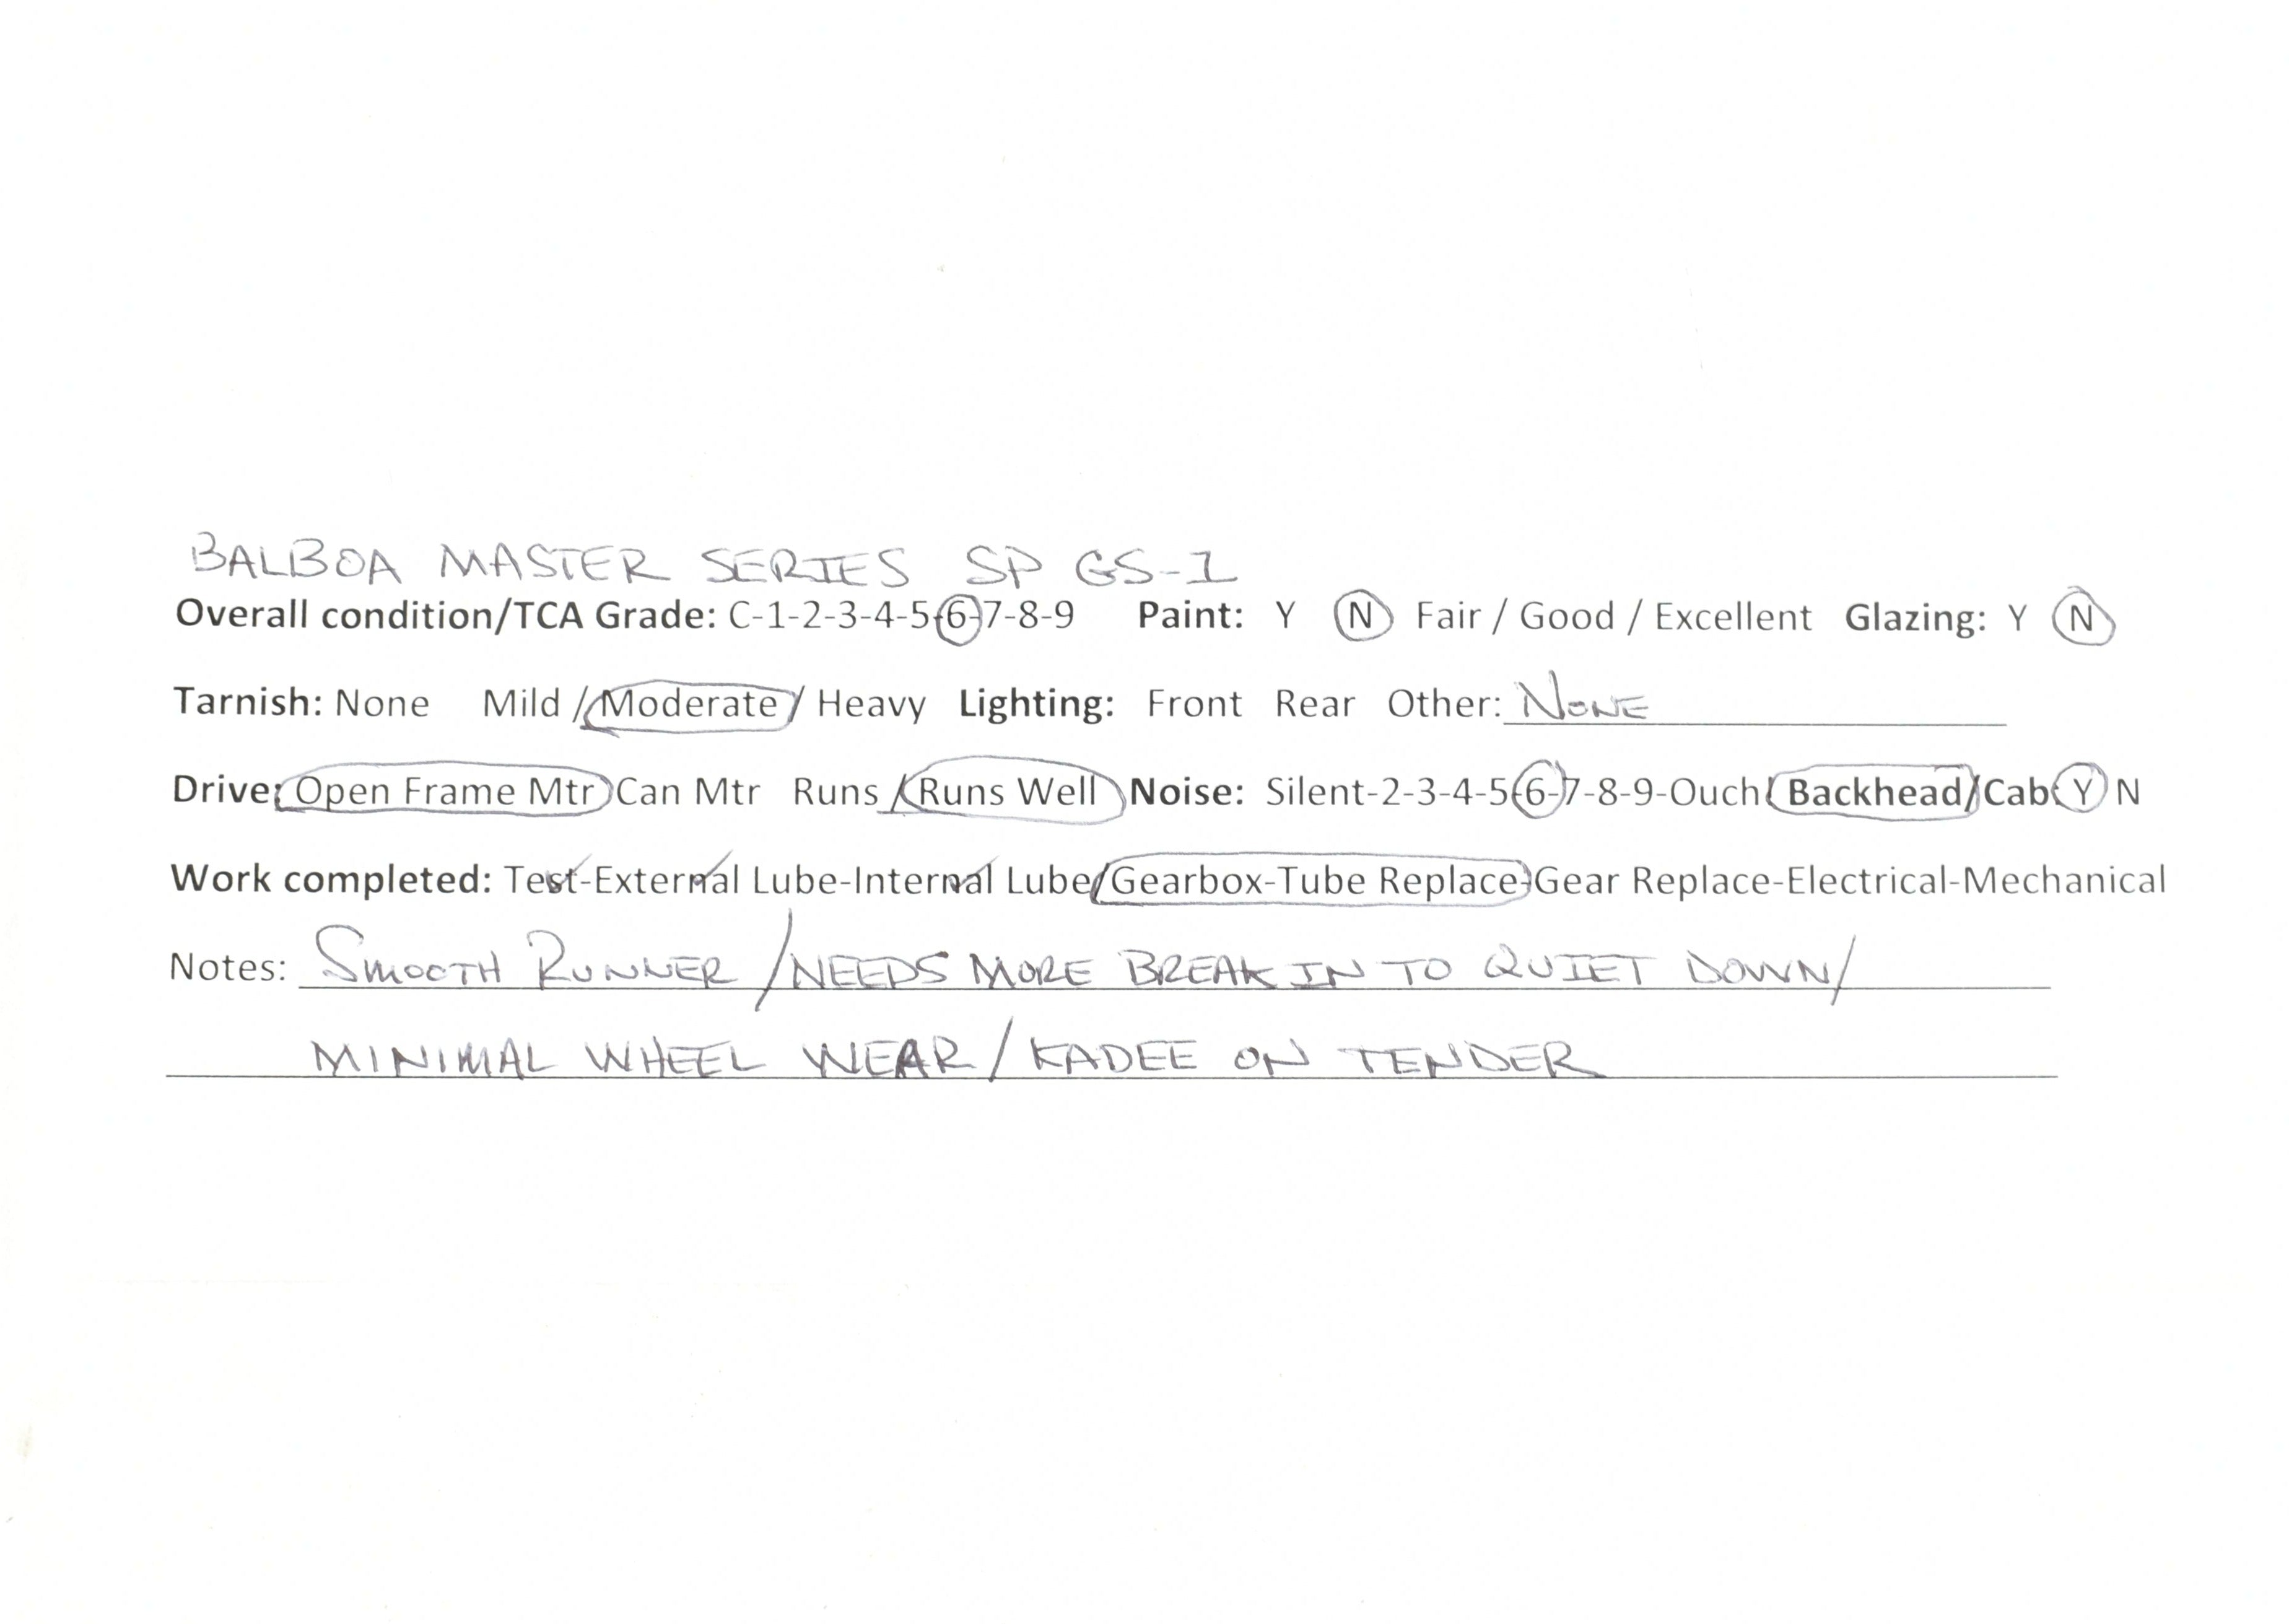 BALBOA MASTER SERIES SP GS-1
Overall condition/TCA Grade: C-1-2-3-4-5-6-7-8-9 Paint: Y N Fair / Good / Excellent Glazing: Y N
Tarnish: None Mild / Moderate / Heavy Lighting: Front Rear Other: NONE
Drive: Open Frame Mtr Can Mtr Runs / Runs Well Noise: Silent-2-3-4-5-6-7-8-9-Ouch! Backhead/Cab: Y N
Work completed: Test-External Lube-Internal Lube/Gearbox-Tube Replace-Gear Replace-Electrical-Mechanical
Notes: SMOOTH RUNNER / NEEDS MORE BREAK IN TO QUIET DOWN/
MINIMAL WHEEL WEAR / KADEE ON TENDER